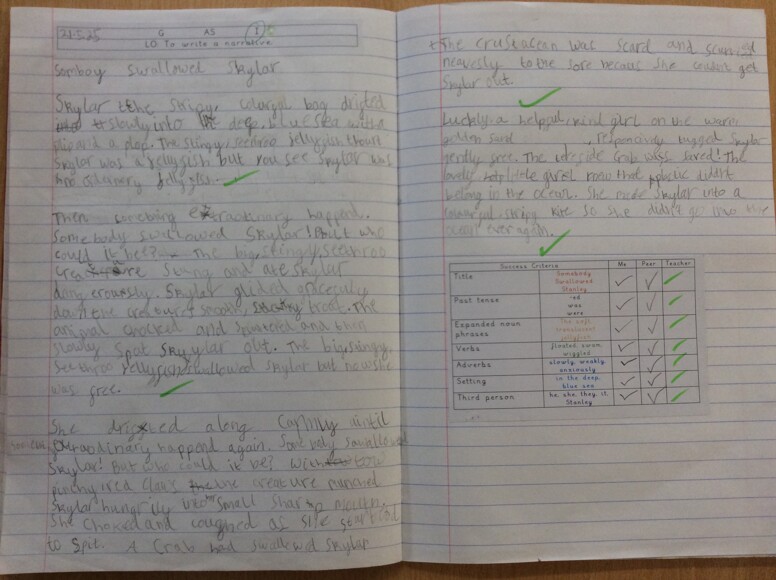 21.5.25 G AS I
LO To write a narrative
Somboy swallowed Skylar
Skylar the stripy, colargal bag drifted
slowly into the deep, blue sea with a
flip and a plop. The stingy, seethroo jellyfish thort
Skylar was a jellyfish, but you see Skylar was
no jellyfish.
Then something extraordinary happend.
Somebody swallowed Skylar! But who
could it bee? The big, stingy, seethroo
creature stung and ate Skylar
dangerously. Skylar glided gracefully
down the smooth, throat. The
animal chocked and and then
slowly spat Skylar out. The big, stingy,
seethroo jellyfish swallowed Skylar but now she
was free.
She drifted along Calmly
extraordinary happend again. Some body swallowed
Skylar! But who could it be? With
pinchy, red claws the creature munched
Skylar hungrily into small sharp mouth.
She choked and coughed as she
to spit. A Crab had swallowed Skylar
The crustacean was scard and
heavely to the sore because she get
Skylar out.
Luckly, a helpful, kind girl on the warm,
golden sand tugged Skylar
gently free. The Crab was saved! The
lovely girl that plastic didn't
belong in the ocean. She made Skylar into a
colourful, stripy kite so she didn't go into the
ocean ever again.
Success Criteria Me Peer Teacher
Title Somebody Swallowed Stanley
Past tense -ed was were
Expanded noun phrases The soft, translucent jellyfish
Verbs floated, swam, wiggled
Adverbs slowly, weakly, anxiously
Setting in the deep, blue sea
Third person he, she, they, it, Stanley